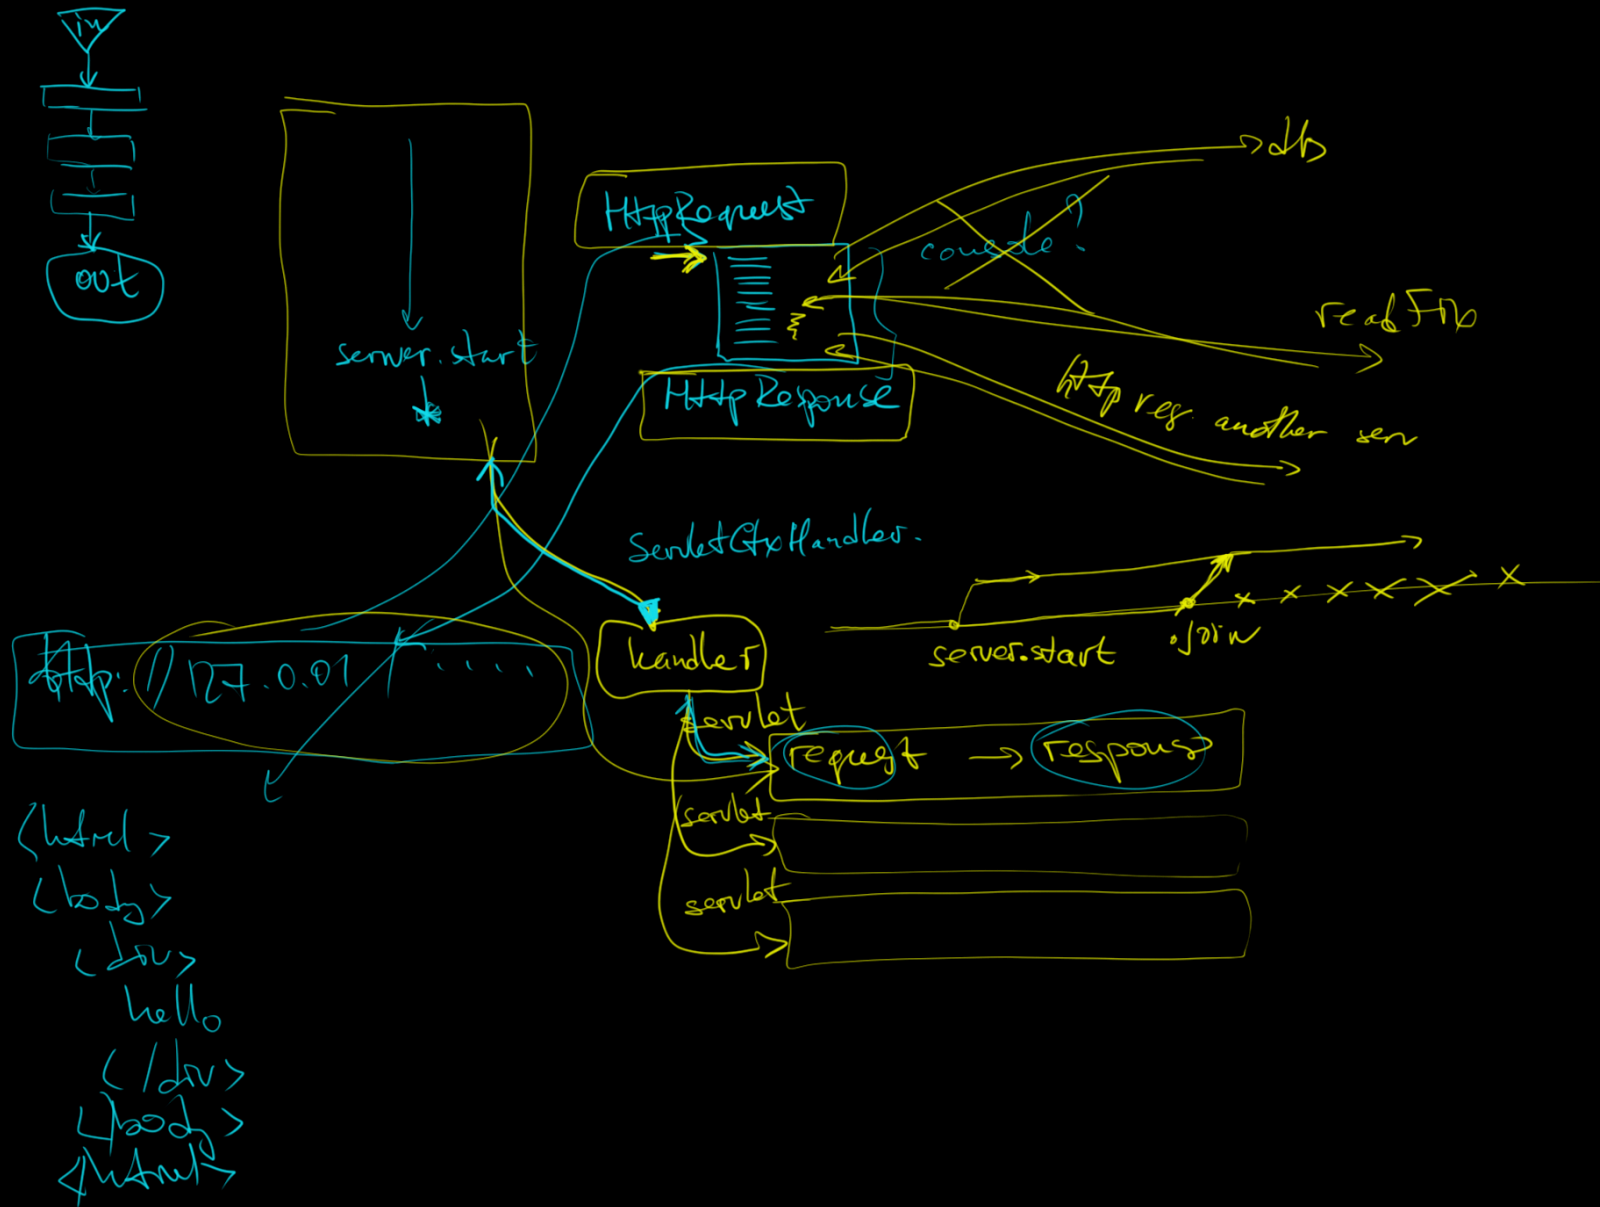 in
out
server.start
HttpRequest
HttpResponse
db
readFile
http req. another serv
ServletCtxHandler.
server.start
.join
http://127.0.01/.....
handler
servlet
request → response
servlet
servlet
<html>
<body>
<div>
hello
</div>
</body>
</html>